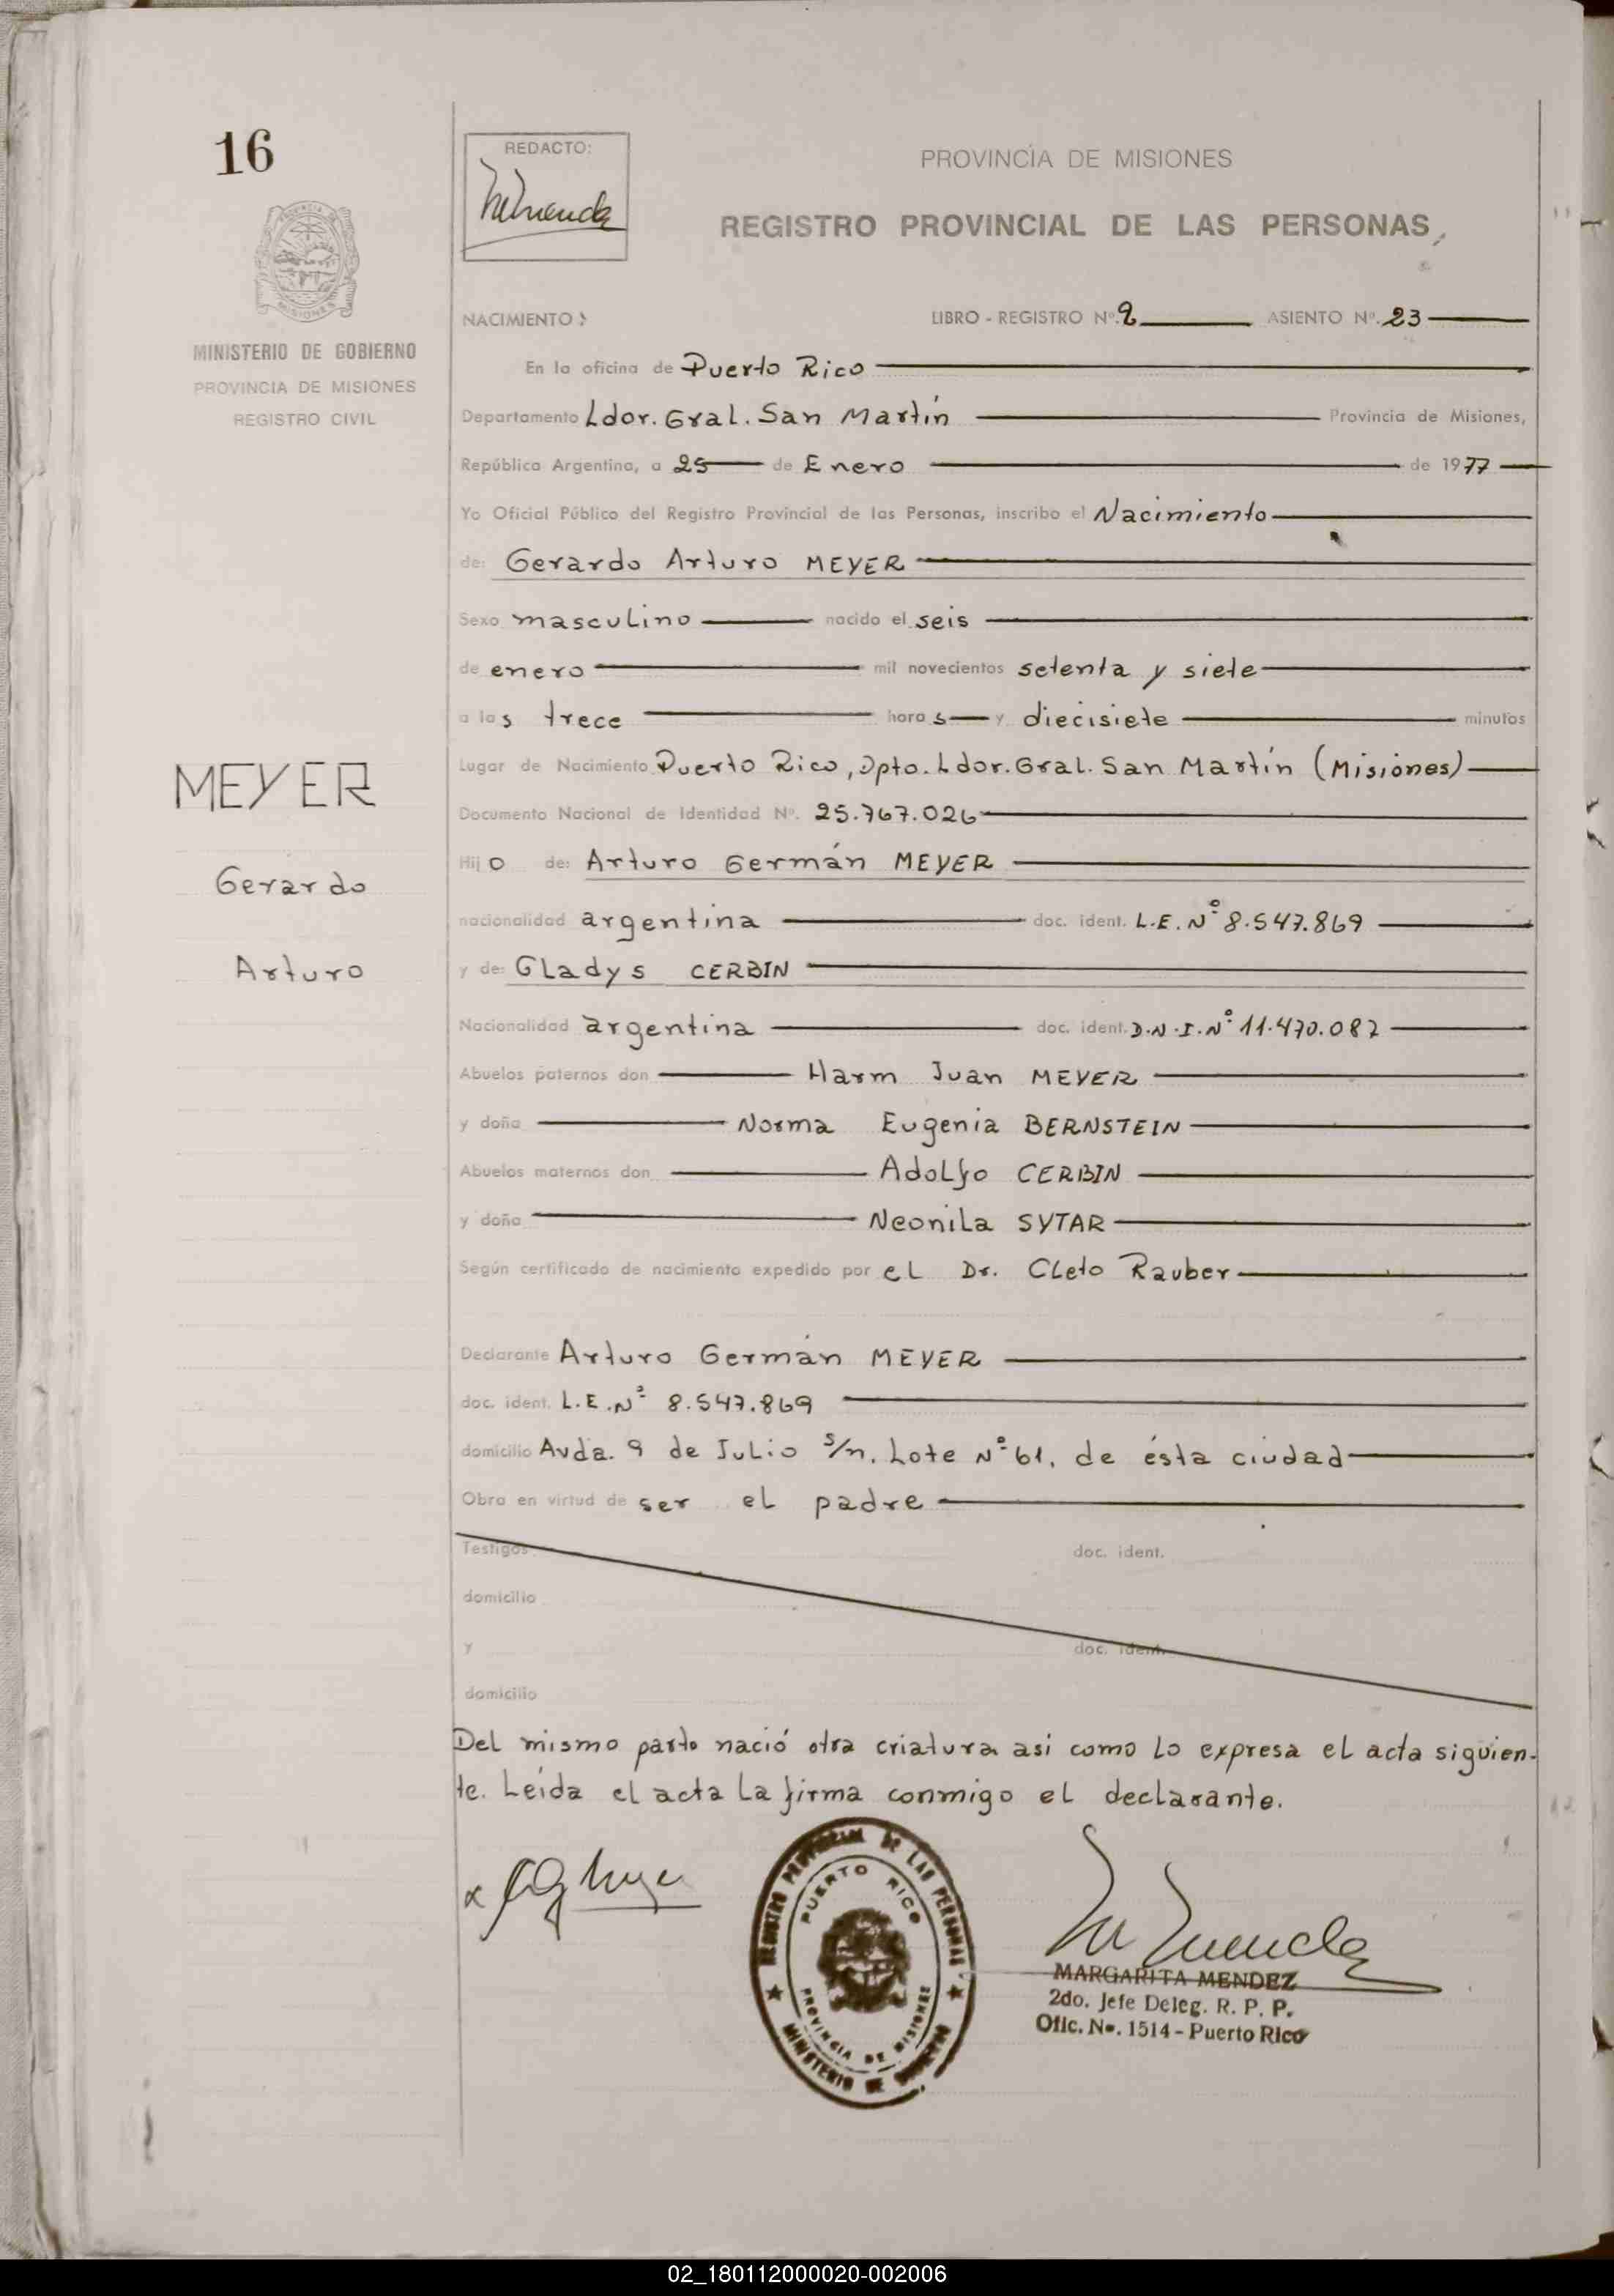 16
REDACTO:
PROVINCIA DE MISIONES
REGISTRO PROVINCIAL DE LAS PERSONAS
MISIONES
MINISTERIO DE GOBIERNO
PROVINCIA DE MISIONES
REGISTRO CIVIL
NACIMIENTO: LIBRO - REGISTRO Nº. 2 ASIENTO Nº. 23
En la oficina de Puerto Rico
Departamento Ldor. Gral. San Martín Provincia de Misiones,
República Argentina, a 25 de Enero de 1977
Yo Oficial Público del Registro Provincial de las Personas, inscribo el Nacimiento
de: Gerardo Arturo MEYER
Sexo masculino nacido el seis
de enero mil novecientos setenta y siete
a las trece horas y diecisiete minutos
Lugar de Nacimiento Puerto Rico, Dpto. Ldor. Gral. San Martín (Misiones)
MEYER
Gerardo
Arturo
Documento Nacional de Identidad Nº. 25.767.026
Hijo de: Arturo Germán MEYER
nacionalidad argentina doc. ident. L.E. Nº 8.547.869
y de: Gladys CERBIN
Nacionalidad argentina doc. ident. D.N.I. Nº 11.470.082
Abuelos paternos don Harm Juan MEYER
y doña Norma Eugenia BERNSTEIN
Abuelos maternos don Adolfo CERBIN
y doña Neonila SYTAR
Según certificado de nacimiento expedido por el Dr. Cleto Rauber
Declarante Arturo Germán MEYER
doc. ident. L.E. Nº 8.547.869
domicilio Avda. 9 de Julio s/n. Lote Nº 61, de ésta ciudad
Obra en virtud de ser el padre
Testigos doc. ident.
domicilio
y doc. ident.
domicilio
Del mismo parto nació otra criatura asi como lo expresa el acta siguien-
te. Leída el acta la firma conmigo el declarante.
REGISTRO PROVINCIAL DE LAS PERSONAS
PUERTO RICO
PROVINCIA DE MISIONES
MINISTERIO DE GOBIERNO
MARGARITA MENDEZ
2do. Jefe Deleg. R. P. P.
Ofic. Nº. 1514 - Puerto Rico
02_180112000020-002006